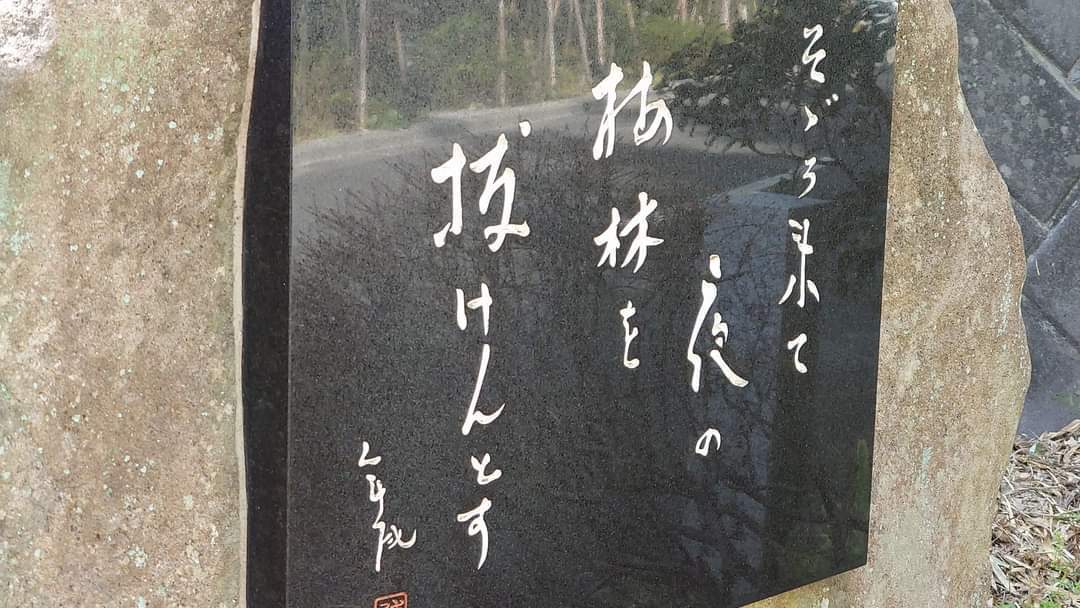 そゞろ来て
夜の
梅林を
抜けんとす